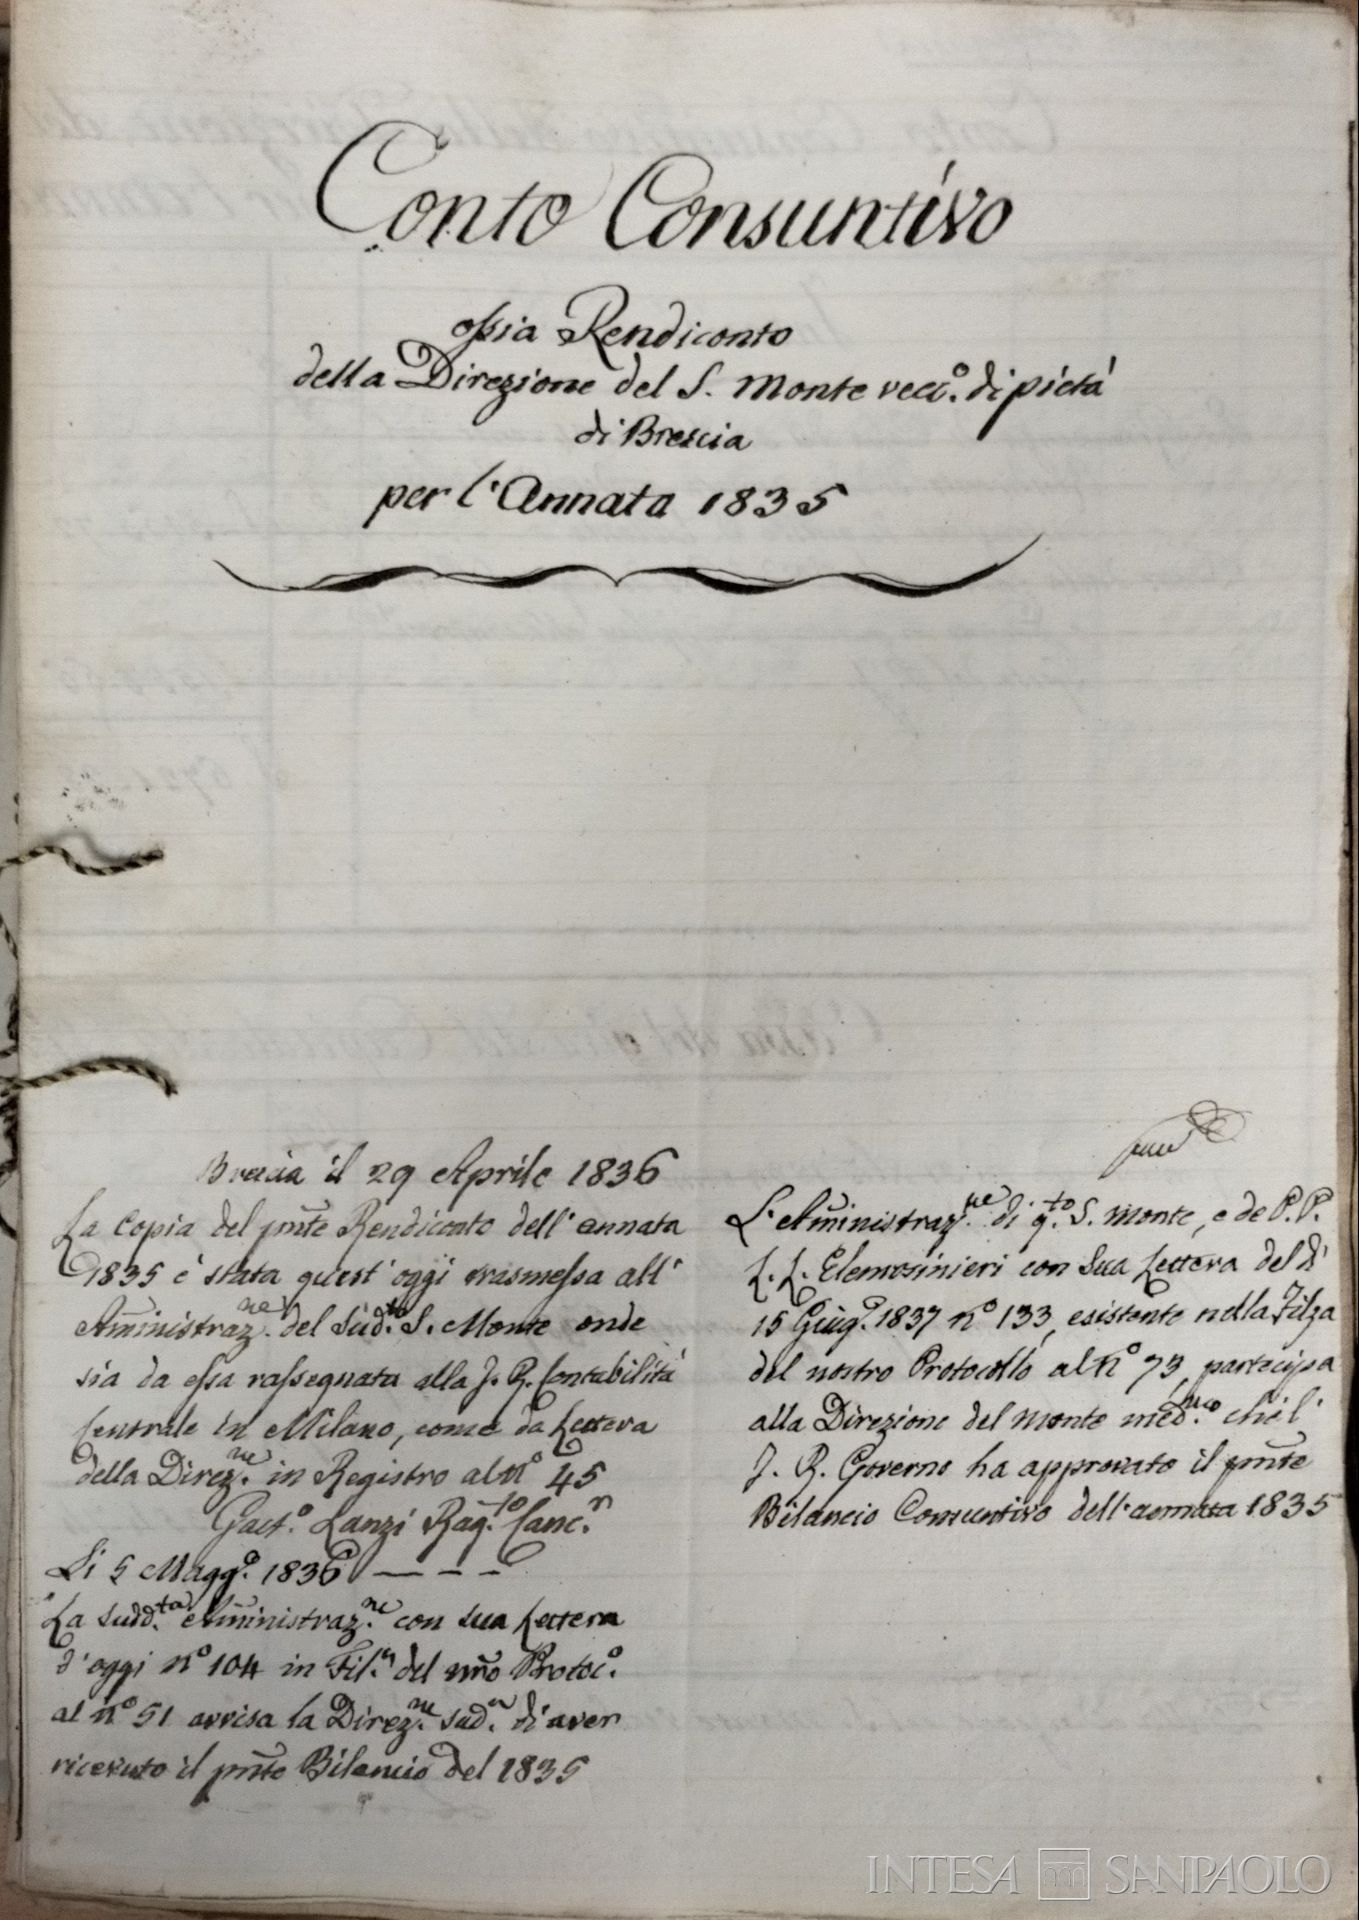 Conto Consuntivo
ossia Rendiconto
della Direzione del S. Monte vecc.º di pietà
di Brescia
per l'Annata 1835
Brescia il 29 Aprile 1836
La Copia del pnte Rendiconto dell'annata
1835 è stata quest'oggi trasmessa all'
Amministraz.ne del Sud.to S. Monte onde
sia da essa rassegnata alla I. R. Contabilità
Centrale in Milano, come da Lettera
della Direz.ne in Registro al nº 45
Gaet.º Lanzi Rag.to Canc.r
Li 5 Magg.º 1836
La sudd.ta Amministraz.ne con sua Lettera
d'oggi nº 104 in Fil.a del nro Protoc.º
al nº 51 avvisa la Direz.ne sud.a di aver
ricevuto il pnte Bilancio del 1835
L'Amministraz.ne di q.to S. Monte, e de P. P.
L. L. Elemosinieri con Sua Lettera del dì
15 Giug.º 1837 nº 133, esistente nella Filza
del nostro Protocollo al nº 73, partecipa
alla Direzione del Monte med.mo che l'
I. R. Governo ha approvato il pnte
Bilancio Consuntivo dell'annata 1835
INTESA SANPAOLO